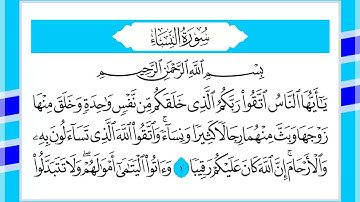 سُورَةُ النِّسَاءِ
بِسْمِ اللَّهِ الرَّحْمَٰنِ الرَّحِيمِ
يَٰٓأَيُّهَا النَّاسُ اتَّقُوا۟ رَبَّكُمُ الَّذِى خَلَقَكُم مِّن نَّفْسٍ وَٰحِدَةٍ وَخَلَقَ مِنْهَا
زَوْجَهَا وَبَثَّ مِنْهُمَا رِجَالًا كَثِيرًا وَنِسَآءً ۚ وَاتَّقُوا۟ اللَّهَ الَّذِى تَسَآءَلُونَ بِهِۦ
وَالْأَرْحَامَ ۚ إِنَّ اللَّهَ كَانَ عَلَيْكُمْ رَقِيبًا ١ وَءَاتُوا۟ الْيَتَٰمَىٰٓ أَمْوَٰلَهُمْ ۖ وَلَا تَتَبَدَّلُوا۟